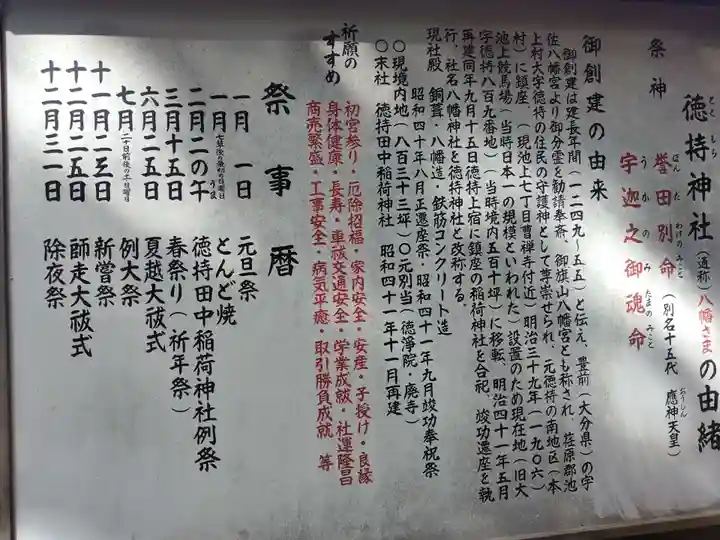 徳持神社（通称）八幡さまの由緒
とくもち
祭神
誉田別命（別名十五代 應神天皇）
ほんだわけのみこと
おうじん
宇迦之御魂命
うかのみたまのみこと
御創建の由来
御創建は建長年間（一二四九～五五）と伝え、豊前（大分県）の宇
佐八幡宮より御分霊を勧請奉斎、御旗山八幡宮とも称され、荏原郡池
上村大字徳持の住民の守護神として尊崇せられ、元徳持の南地区（本
村）に鎮座（現池上七丁目曹禅寺付近）明治三十九年（一九〇六）
池上競馬場（当時日本一の規模といわれた）設置のため現在地（旧大
字徳持八百九番地）（当時境内五百十坪）に移転、明治四十一年五月
再建同年九月十五日徳持上宿に鎮座の稲荷神社を合祀、竣功遷座を執
行、社名八幡神社を徳持神社と改称する。
現社殿 銅葺・八幡造・鉄筋コンクリート造
昭和四十年八月正遷座祭・昭和四十一年九月竣功奉祝祭
〇現境内地（八百三十三坪）〇元別当（徳浄院・廃寺）
〇末社 徳持田中稲荷神社 昭和四十一年十一月再建
祈願のすすめ
初宮参り・厄除招福・家内安全・安産・子授け・良縁
身体健康・長寿・車祓交通安全・学業成就・社運隆昌
商売繁盛・工事安全・病気平癒・取引勝負成就 等
祭事暦
一月一日 元旦祭
一月 七草後の最初の日曜日 とんど焼
二月二の午 徳持田中稲荷神社例祭
うま
三月十五日 春祭り（祈年祭）
六月二五日 夏越大祓式
七月 二十日前後の土日曜日 例大祭
十一月二三日 新嘗祭
十二月二五日 師走大祓式
十二月三一日 除夜祭